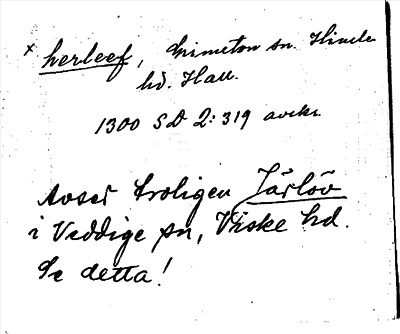 x herleef, Grimeton sn. Himle
hd. Hall.
1300 SD 2:319 avskr.
Avser troligen Järlöv
i Veddige sn, Viske hd.
Se detta!